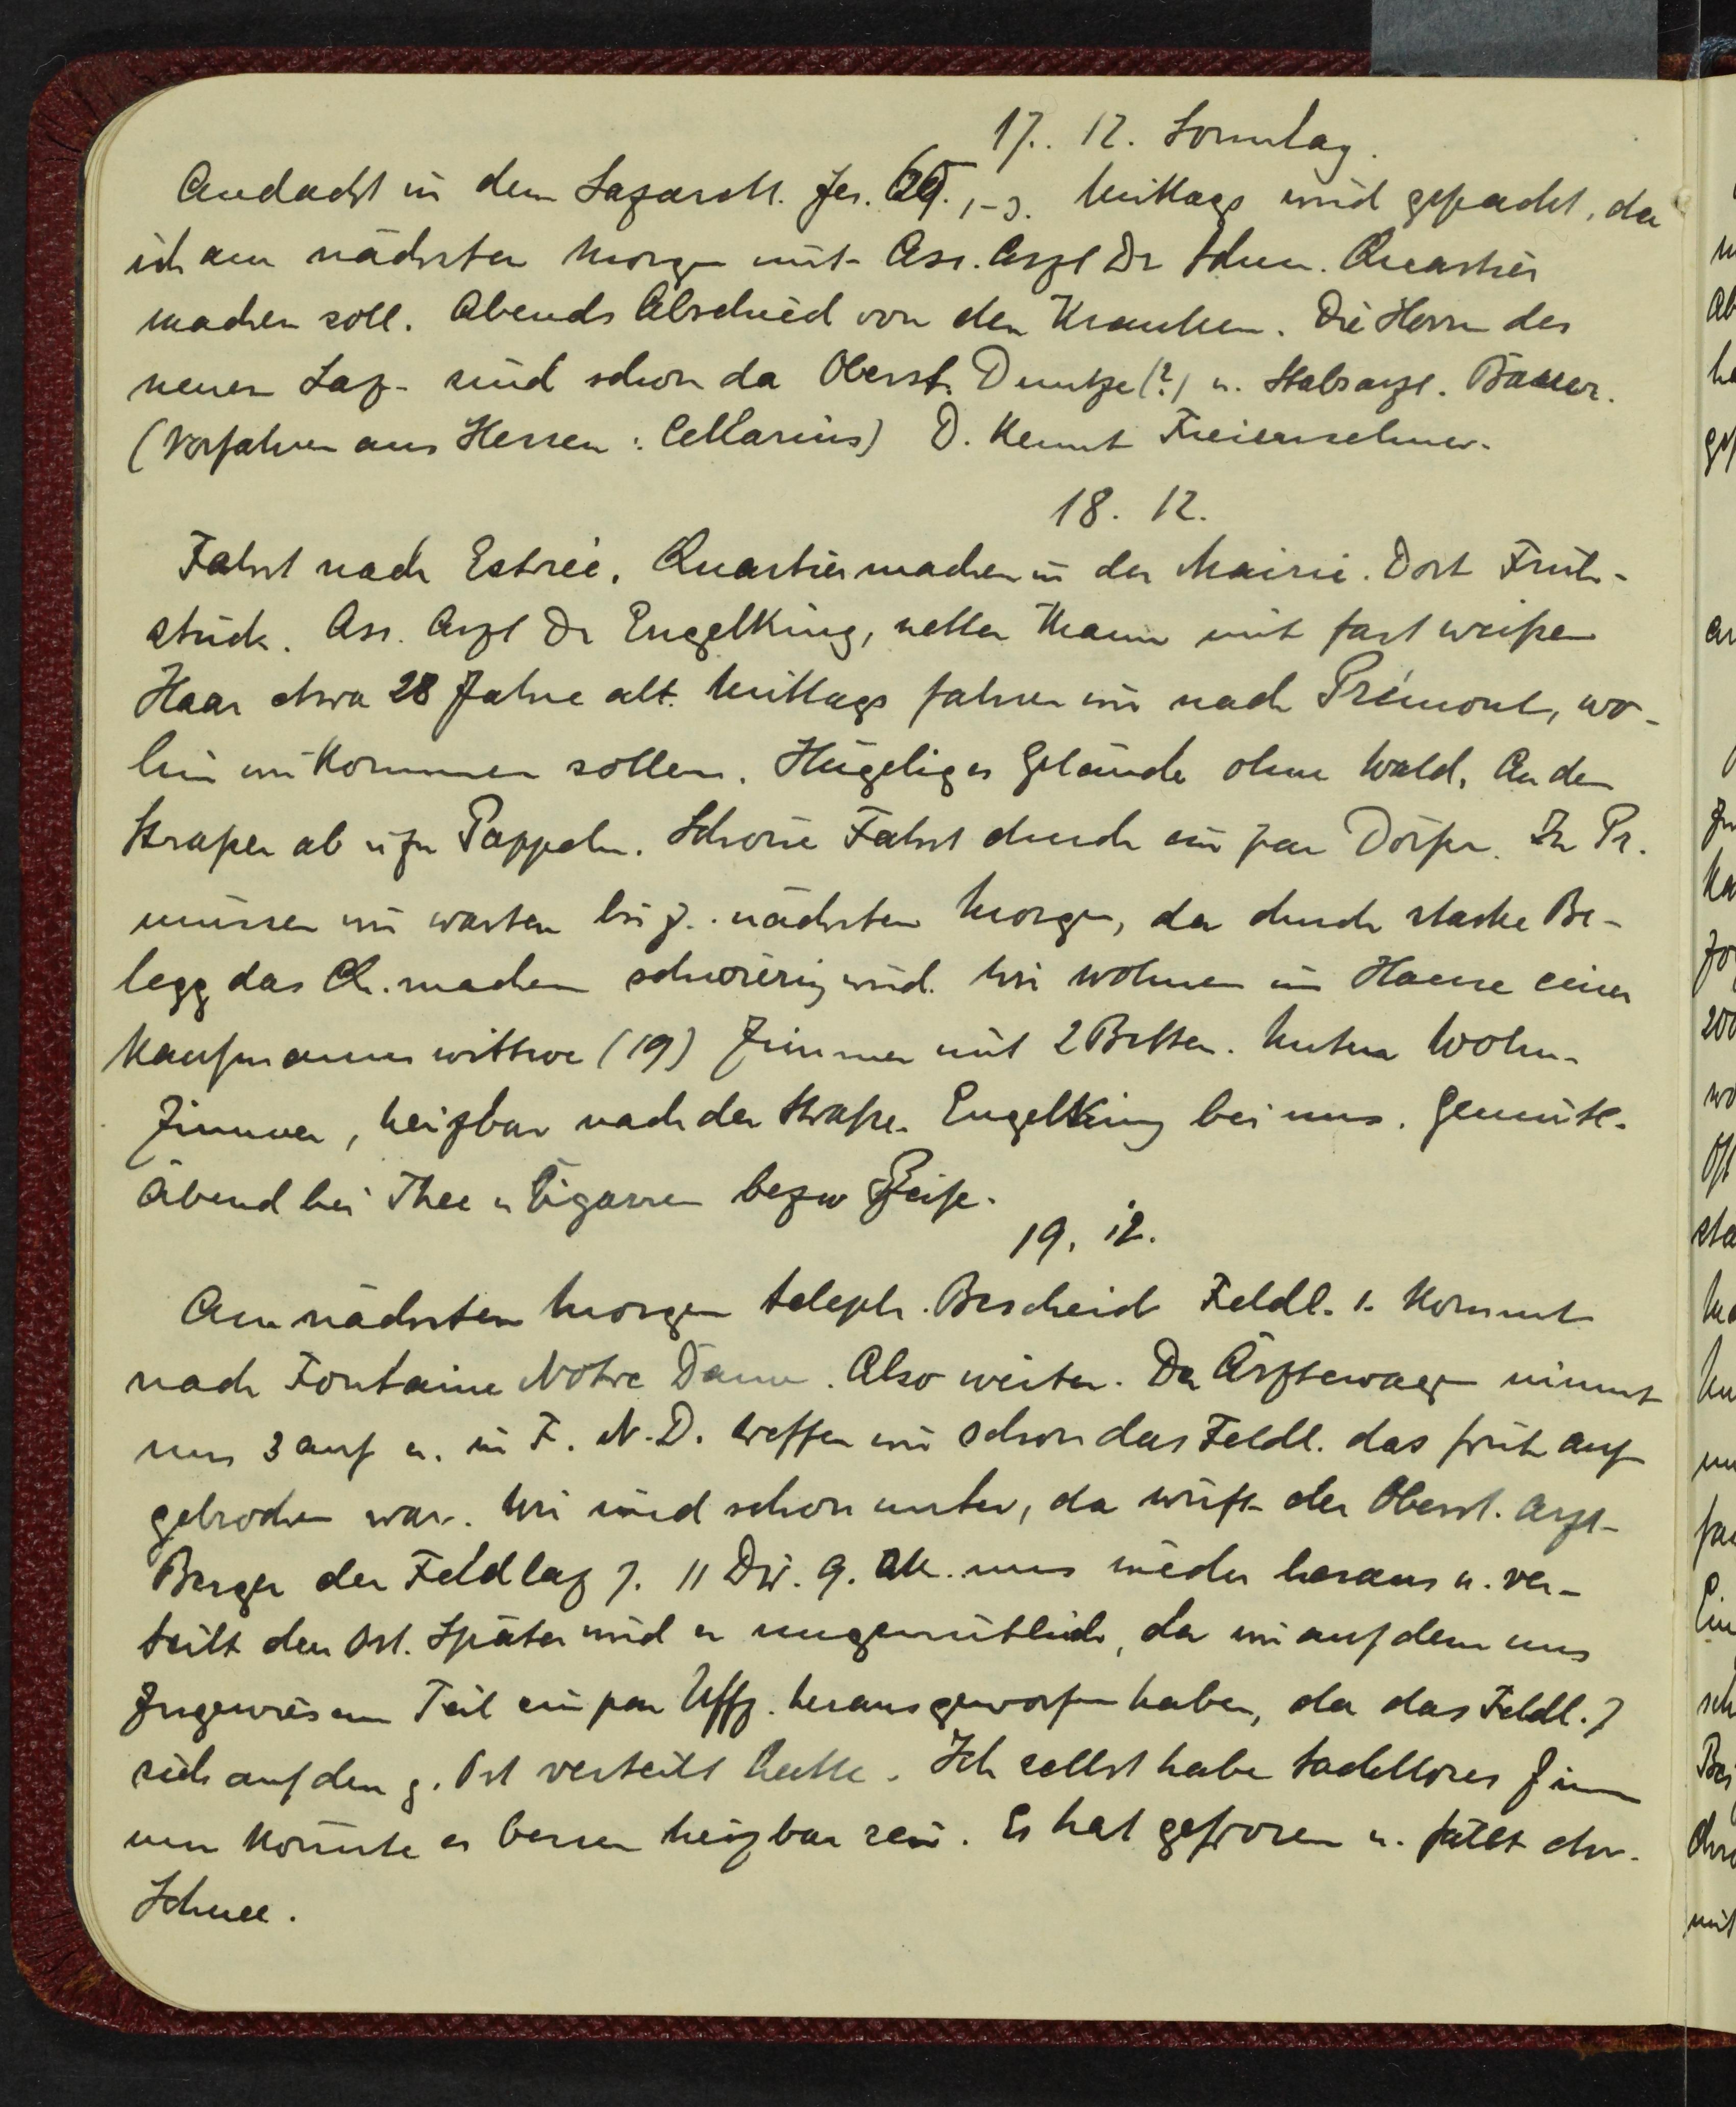 17. 12. Sonntag.
Andacht in dem Lazarett. Jes. 1-3. Mittags wird gepackt, da
ich am nächsten Morgen mit Ass. Arzt Dr Schm. Quartier
machen soll. Abends Abschied von den Kranken. Die Herrn des
neuen Laz. sind schon da Oberst. Duntze (?) u. Stabsarzt. Bauer.
(Vorfahren aus Hessen: Cellarius) D. kennt
18. 12.
Fahrt nach Estreé. Quartiermachen in der Mairie. Dort Früh-
stück. Ass. Arzt Dr Engelking, netter Mann mit fast weißen
Haar etwa 28 Jahre alt. Mittags fahren wir nach Prémont, wo-
hin wir kommen sollen. Hügeliges Gelände ohne Wald. An den
Straßen ab u zu Pappeln. Schöne Fahrt durch ein par Dörfer. In Pr.
müssen wir warten bis z. nächsten Morgen, da durch starke Be-
legg das Qu. machen schwierig wird. Wir wohnen im Hause einer
Kaufmannswittwe (19) Zimmer mit 2 Betten. Unten Wohn-
zimmer, heizbar nach der Straße. Engelking bei uns. Gemütl.
Abend bei Thee u Cigarren bezw Pfeife.
19. 12.
Am nächsten Morgen teleph. Bescheid Feldl. 1. kommt
nach Fontaine Notre Dame. Also weiter. Der Ärztewagen nimmt
uns 3 auf u. in F. N. D. treffen wir schon das Feldl. das früh auf
gebrochen war. Wir sind schon unter, da wirft der Oberst. Arzt
Berger der Feldlaz 7. 11 Div. 9. AK. uns wieder heraus u. ver-
teilt den Ort. Später wird er ungemütlich, da wir auf dem uns
zugewiesenen Teil ein par Uffz. herausgeworfen haben, da das Feldl. 7
sich auf den g. Ort verteilt hatte. Ich selbst habe tadelloses Zimm
nur könnte es besser heizbar sein. Es hat gefroren u. fällt etw.
Schnee.